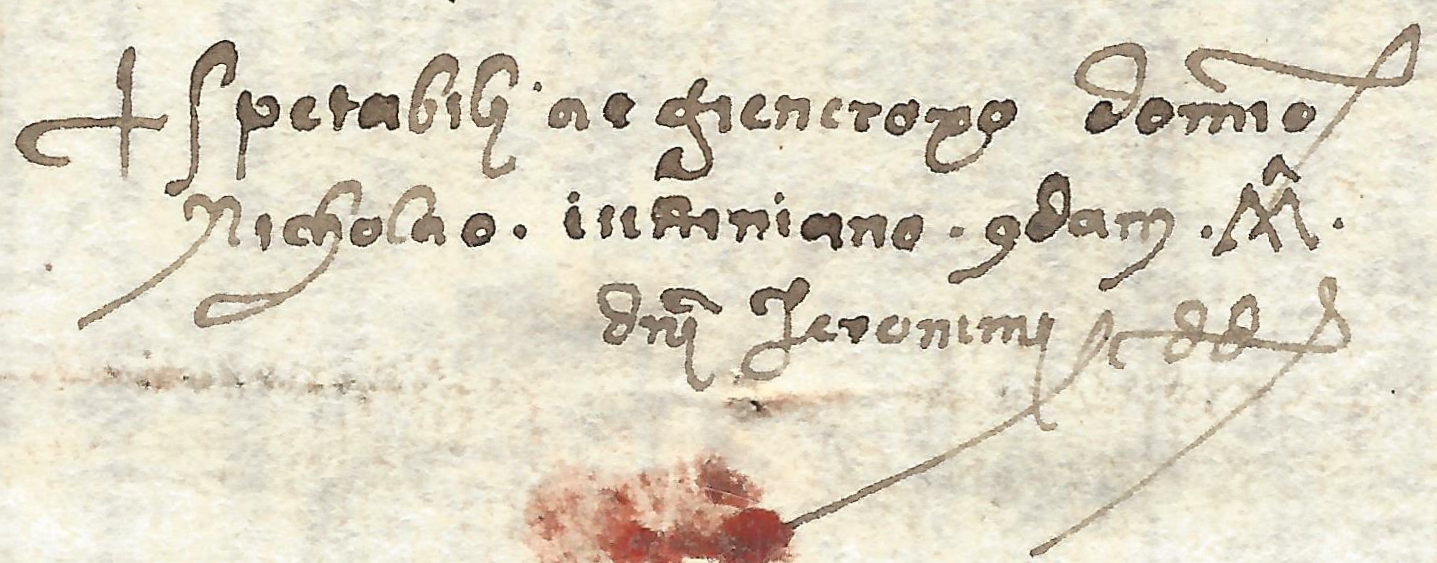 + Spetabilj ac gieneroxo domio
Nicholao. iustiniano. qdam. M.
dnj Jeronimj